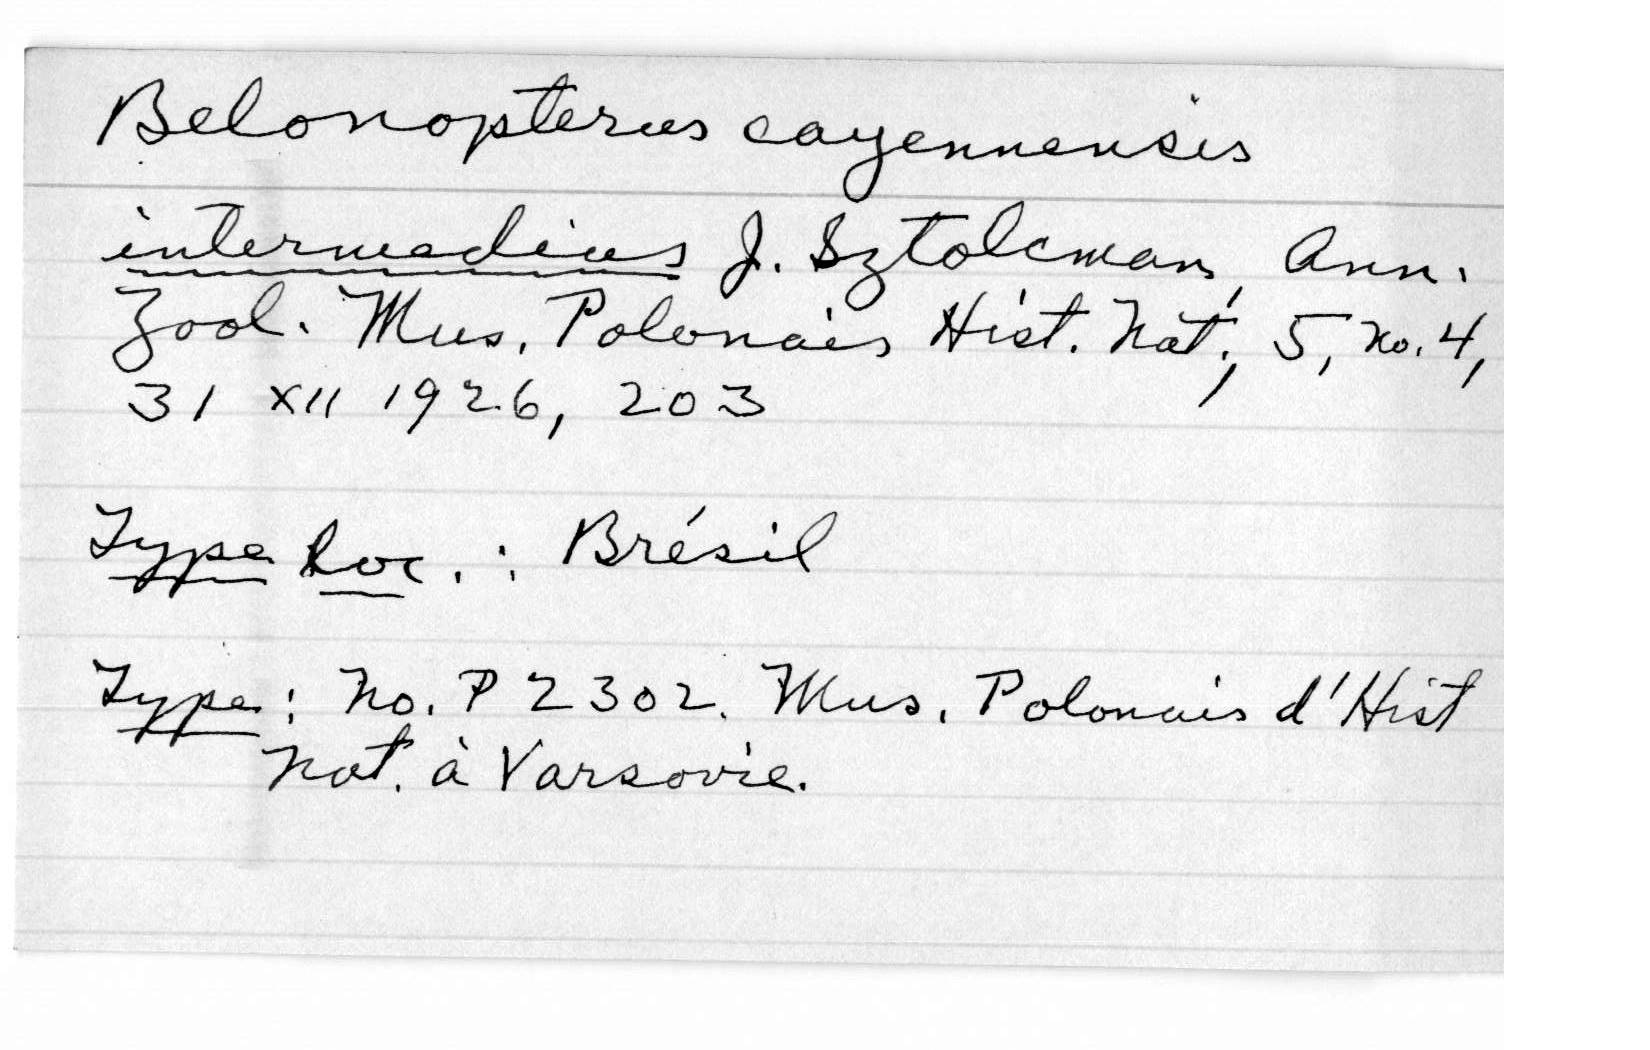 Belonopterus cayennensis
intermedius J. Sztolcman, Ann.
Zool. Mus. Polonais Hist. Nat., 5, no. 4,
31 XII 1926, 203
Type Loc. : Brésil
Type : No. P 2302. Mus. Polonais d'Hist
Nat. à Varsovie.